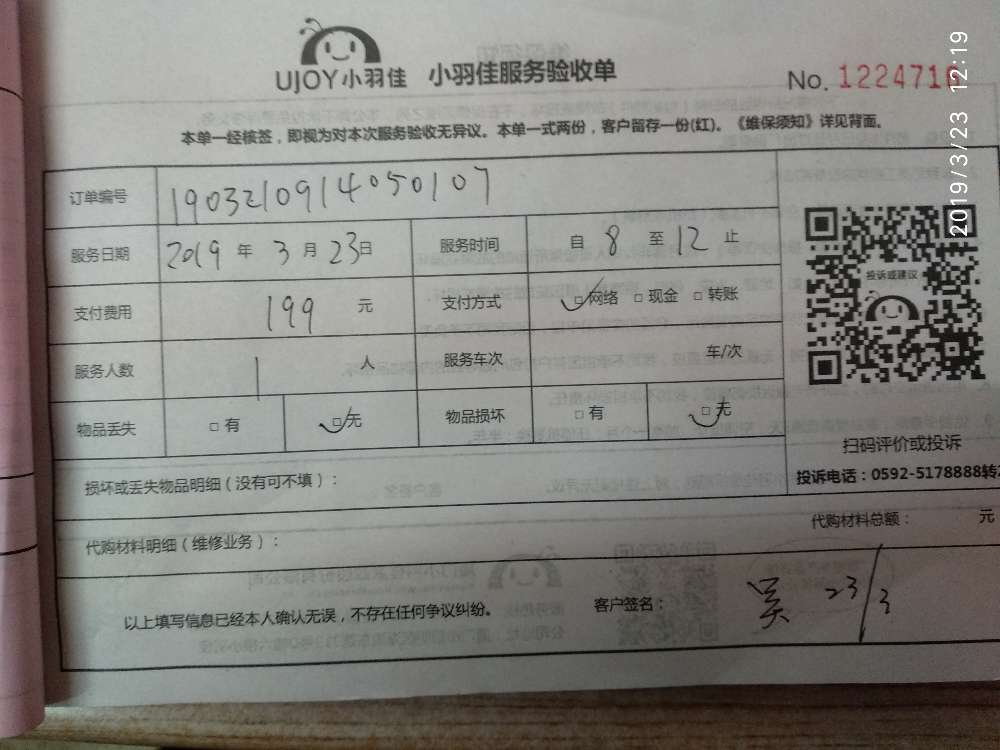 UJOY小羽佳 小羽佳服务验收单
No. 1224716
2019/3/23 12:19
本单一经核签，即视为对本次服务验收无异议。本单一式两份，客户留存一份(红)。《维保须知》详见背面。
订单编号 1903210914050107
服务日期 2019 年 3 月 23日 服务时间 自 8 至 12 止
支付费用 199 元 支付方式 □网络 □现金 □转账
服务人数 1 人 服务车次 车/次
物品丢失 □有 □无 物品损坏 □有 □无
投诉或建议
扫码评价或投诉
投诉电话：0592-5178888转2
损坏或丢失物品明细（没有可不填）：
代购材料明细（维修业务）： 代购材料总额： 元
以上填写信息已经本人确认无误，不存在任何争议纠纷。 客户签名： 吴 23/3